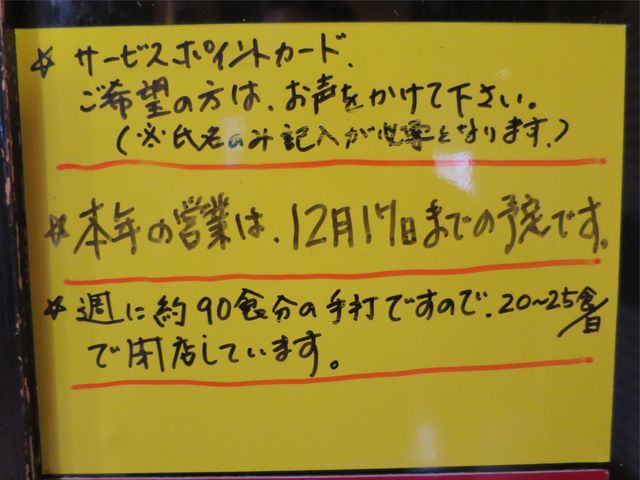 ☆ サービスポイントカード、
ご希望の方は、お声をかけて下さい。
(※氏名のみ記入が必要となります。)
☆ 本年の営業は、12月17日までの予定です。
☆ 週に約90食分の手打ですので、20~25食/日
で閉店しています。